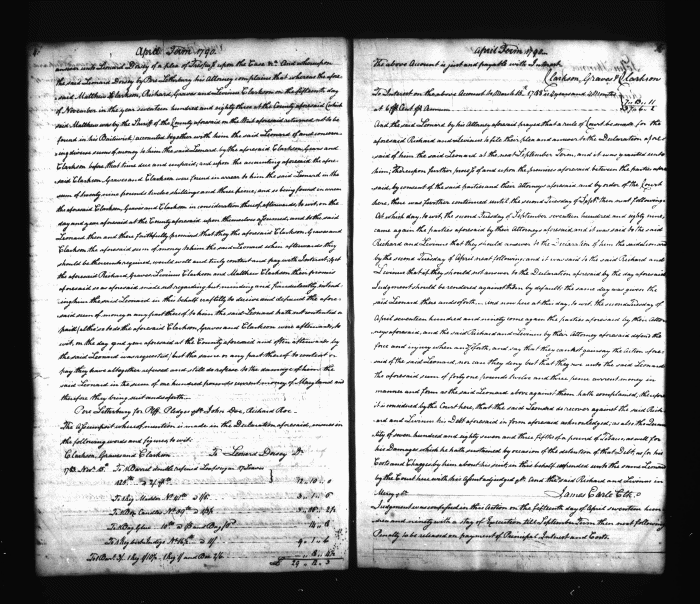 April Term 1790.
answer unto Leonard Dorsey of a plea of Trespass upon the Case &c. And whereupon
the said Leonard Dorsey by Pere Letherbury his Attorney complains that whereas the afore
said Matthew Clarkson, Richard Graves and Levinus Clarkson on the fifteenth day
of November in the year seventeen hundred and eighty three at the County aforesaid (which
said Matthew was by the Sheriff of the County aforesaid on the Writ aforesaid returned not to be
found in his Bailiwick) accounted together with him the said Leonard of and concern
ing divers sums of money to him the said Leonard by the aforesaid Clarkson, Graves and
Clarkson before that time due and unpaid, and upon the accounting aforesaid the afore
said Clarkson, Graves and Clarkson were found in arrear to him the said Leonard in the
sum of twenty nine pounds twelve shillings and three pence, and so being found in arrear
the aforesaid Clarkson, Graves and Clarkson in consideration thereof afterwards, to wit, on the
day and year aforesaid at the County aforesaid upon themselves assumed, and to the said
Leonard then and there faithfully promised that they the aforesaid Clarkson, Graves and
Clarkson, the aforesaid sum of money to him the said Leonard when afterwards they
should be thereunto required, would well and truly content and pay with Interest; yet
the aforesaid Richard Graves Levinus Clarkson and Matthew Clarkson their promise
aforesaid so as aforesaid made not regarding but minding and fraudulently intend
ing him the said Leonard in this behalf craftily to deceive and defraud the afore
said sum of money or any part thereof to him the said Leonard hath not contented or
paid; altho so to do the aforesaid Clarkson, Graves and Clarkson were afterwards, to
wit, on the day and year aforesaid at the County aforesaid and often afterwards by
the said Leonard was requested; but the same or any part thereof to content or
pay they have altogether refused and still do refuse to the damage of him the
said Leonard in the sum of one hundred pounds current money of Maryland and
therefore they bring suit and so forth.
Pere Letherbury for Plff. Pledges &c. John Doe, Richard Roe.
The Assumpsit whereof mention is made in the Declaration aforesaid, ensues in
the following words and figures to wit;
Clarkson, Graves and Clarkson To Leonard Dorsey Dr.
1783. Novr. 15th. To 1 Barrel double refined Loaf sugar
12 10 0
9 1 6
£ 29 12 3
April Term 1790.
The above Account is just and payable with Interest.
Clarkson, Graves & Clarkson
To Interest on the above Account to March 15th. 1788 is 4 years and 4 Months
at 6 pr. Cent pr. Annum
7 13 11
And the said Leonard by his Attorney aforesaid prays that a rule of Court be made for the
aforesaid Richard and Levinus to file their plea and answer to the Declaration afore
said of him the said Leonard at the next September Term, and it was granted unto
him; Thereupon further process of and upon the premises aforesaid between the parties afore
said, by consent of the said parties and their Attornies aforesaid and by order of the Court
here, there was further continued until the second Tuesday of Septr. then next following.
At which day, to wit, the second Tuesday of September seventeen hundred and eighty nine,
came again the parties aforesaid by their Attornies aforesaid, and it was said to the said
Richard and Levinus that they should answer to the Declaration of him the said Leonard
by the second Tuesday of April next following; and it was said to the said Richard and
Levinus that if they should not answer to the Declaration aforesaid by the day aforesaid
Judgment should be rendered against them by default; the same day was given the
said Leonard there and so forth. And now here at this day, to wit, the second Tuesday of
April seventeen hundred and ninety come again the parties aforesaid by their Attor
neys aforesaid, and the said Richard and Levinus by their Attorney aforesaid defend the
force and injury when and so forth, and say that they cannot gainsay the Action afore
said of the said Leonard, nor can they deny but that they owe unto the said Leonard
the aforesaid sum of forty one pounds twelve and three pence current money in
manner and form as the said Leonard above against them hath complained; therefore
it is considered by the Court here, that the said Leonard do recover against the said Rich
ard and Levinus his Debt aforesaid in form aforesaid acknowledged; as also the Quan
tity of seven hundred and eighty seven and three fifths of a pound of Tobacco, as well for
his Damages which he hath sustained by occasion of the detention of that Debt, as for his
Costs and Charges by him about his suit in this behalf expended unto the said Leonard
by the Court here with his Assent adjudged &c. And the said Richard and Levinus in
Mercy &c.
James Earle Clk.
Judgment was confessed in this Action on the fifteenth day of April seventeen hun
dred and ninety with a stay of Execution till September Term then next following
Penalty to be released on payment of Principal Interest and Costs.